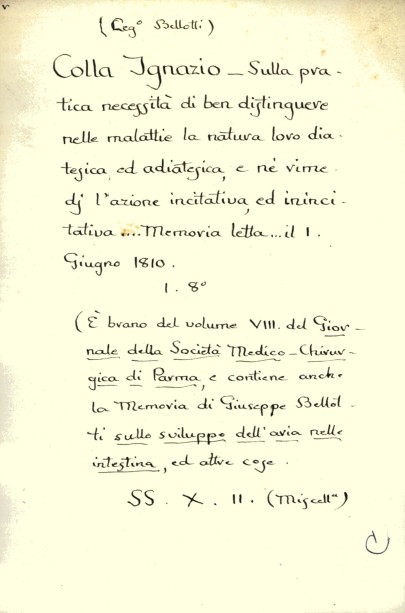 (Leg.º Bellotti)
Colla Ignazio – Sulla pra-
tica necessità di ben distinguere
nelle malattie la natura loro dia-
tesica, ed adiatesica, e ne' rime-
dj l'azione incitativa, ed ininci-
tativa .... Memoria letta ... il 1.
Giugno 1810.
1. 8º
(È brano del volume VIII. del Gior-
nale della Società Medico-Chirur-
gica di Parma, e contiene anche
la Memoria di Giuseppe Bellot-
ti sullo sviluppo dell'aria nelle
intestina, ed altre cose.
SS. X. 11. (Miscellª)